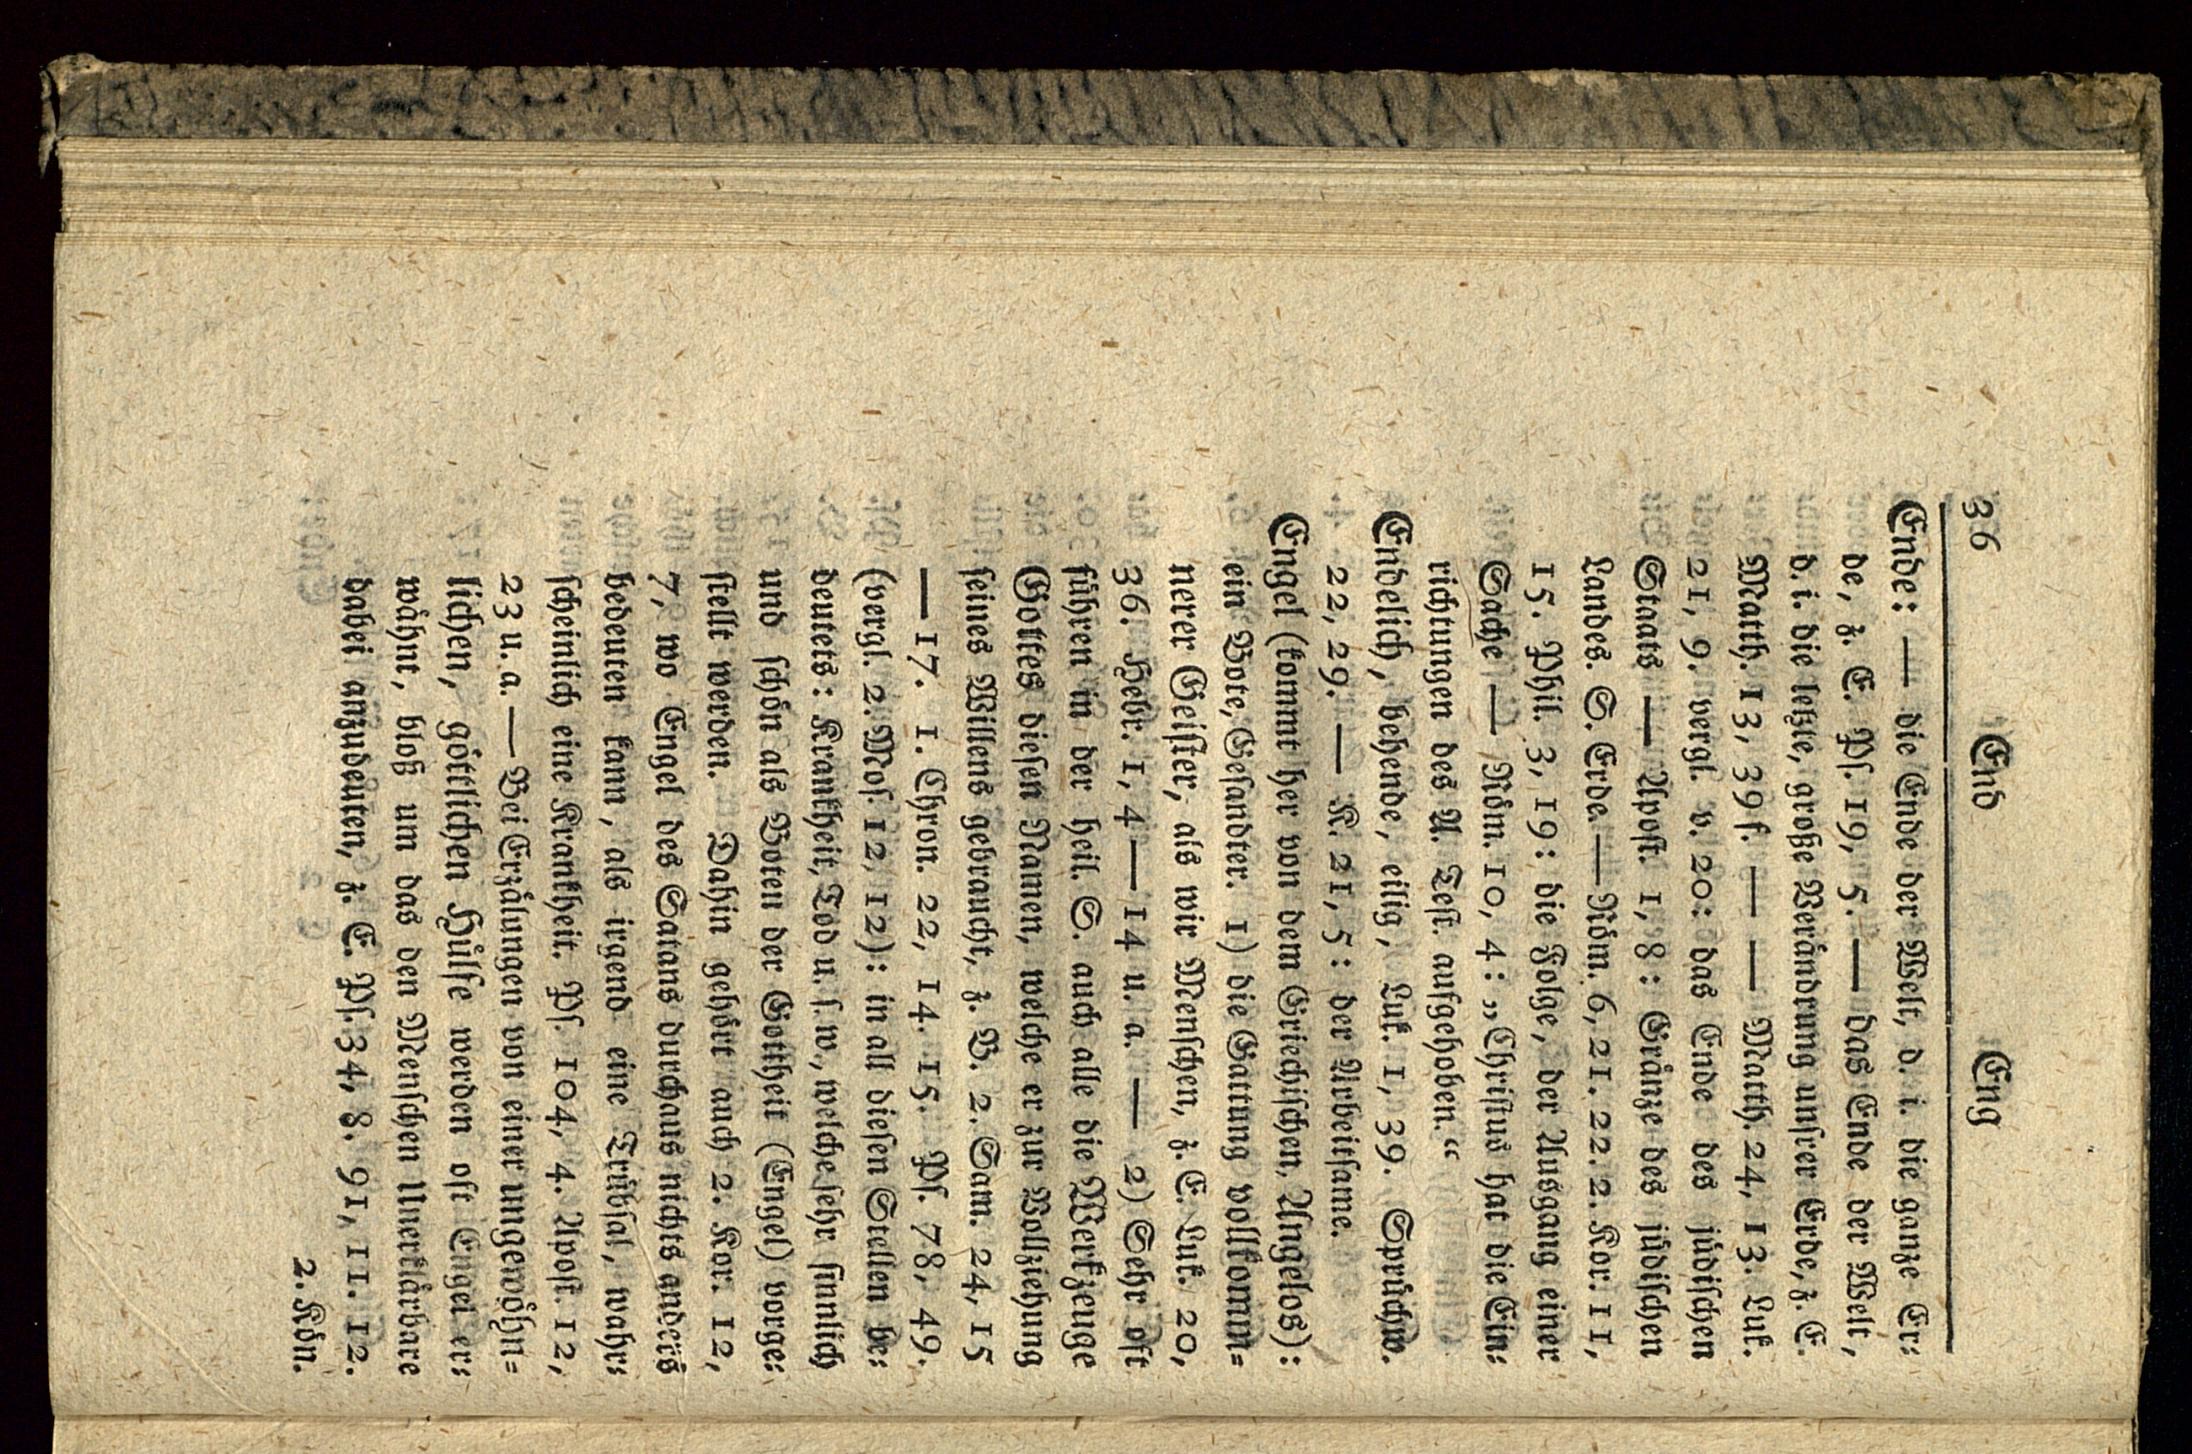 36 End Eng
Ende: — die Ende der Welt, d. i. die ganze Er:
de, z. E. Pſ. 19, 5. — das Ende der Welt,
d. i. die letzte, große Verändrung unſrer Erde, z. E.
Matth. 13, 39 f. — — Matth. 24, 13. Luk.
21, 9. vergl. v. 20: das Ende des jüdiſchen
Staats — Apoſt. 1, 8: Gränze des jüdiſchen
Landes. S. Erde. — Röm. 6, 21. 22. 2. Kor. 11,
15. Phil. 3, 19: die Folge, der Ausgang einer
Sache — Röm. 10, 4: „Chriſtus hat die Ein:
richtungen des A. Teſt. aufgehoben.“
Endelich, behende, eilig, Luk. 1, 39. Sprüchw.
22, 29. — K. 21, 5: der Arbeitſame.
Engel (kommt her von dem Griechiſchen, Angelos):
ein Bote, Geſandter. 1) die Gattung vollkomm=
nerer Geiſter, als wir Menſchen, z. E. Luk. 20,
36. Hebr. 1, 4 — 14 u. a. — 2) Sehr oft
führen in der heil. S. auch alle die Werkzeuge
Gottes dieſen Namen, welche er zur Vollziehung
ſeines Willens gebraucht, z. B. 2. Sam. 24, 15
— 17. 1. Chron. 22, 14. 15. Pſ. 78, 49.
(vergl. 2. Moſ. 12, 12): in all dieſen Stellen be:
deutets: Krankheit, Tod u. ſ. w., welche ſehr ſinnlich
und ſchön als Boten der Gottheit (Engel) vorge:
ſtellt werden. Dahin gehört auch 2. Kor. 12,
7, wo Engel des Satans durchaus nichts anders
bedeuten kann, als irgend eine Trübſal, wahr:
ſcheinlich eine Krankheit. Pſ. 104, 4. Apoſt. 12,
23 u. a. — Bei Erzälungen von einer ungewöhn=
lichen, göttlichen Hülfe werden oft Engel er:
wähnt, bloß um das den Menſchen Unerklärbare
dabei anzudeuten, z. E. Pſ. 34, 8. 91, 11. 12.
2. Kön.